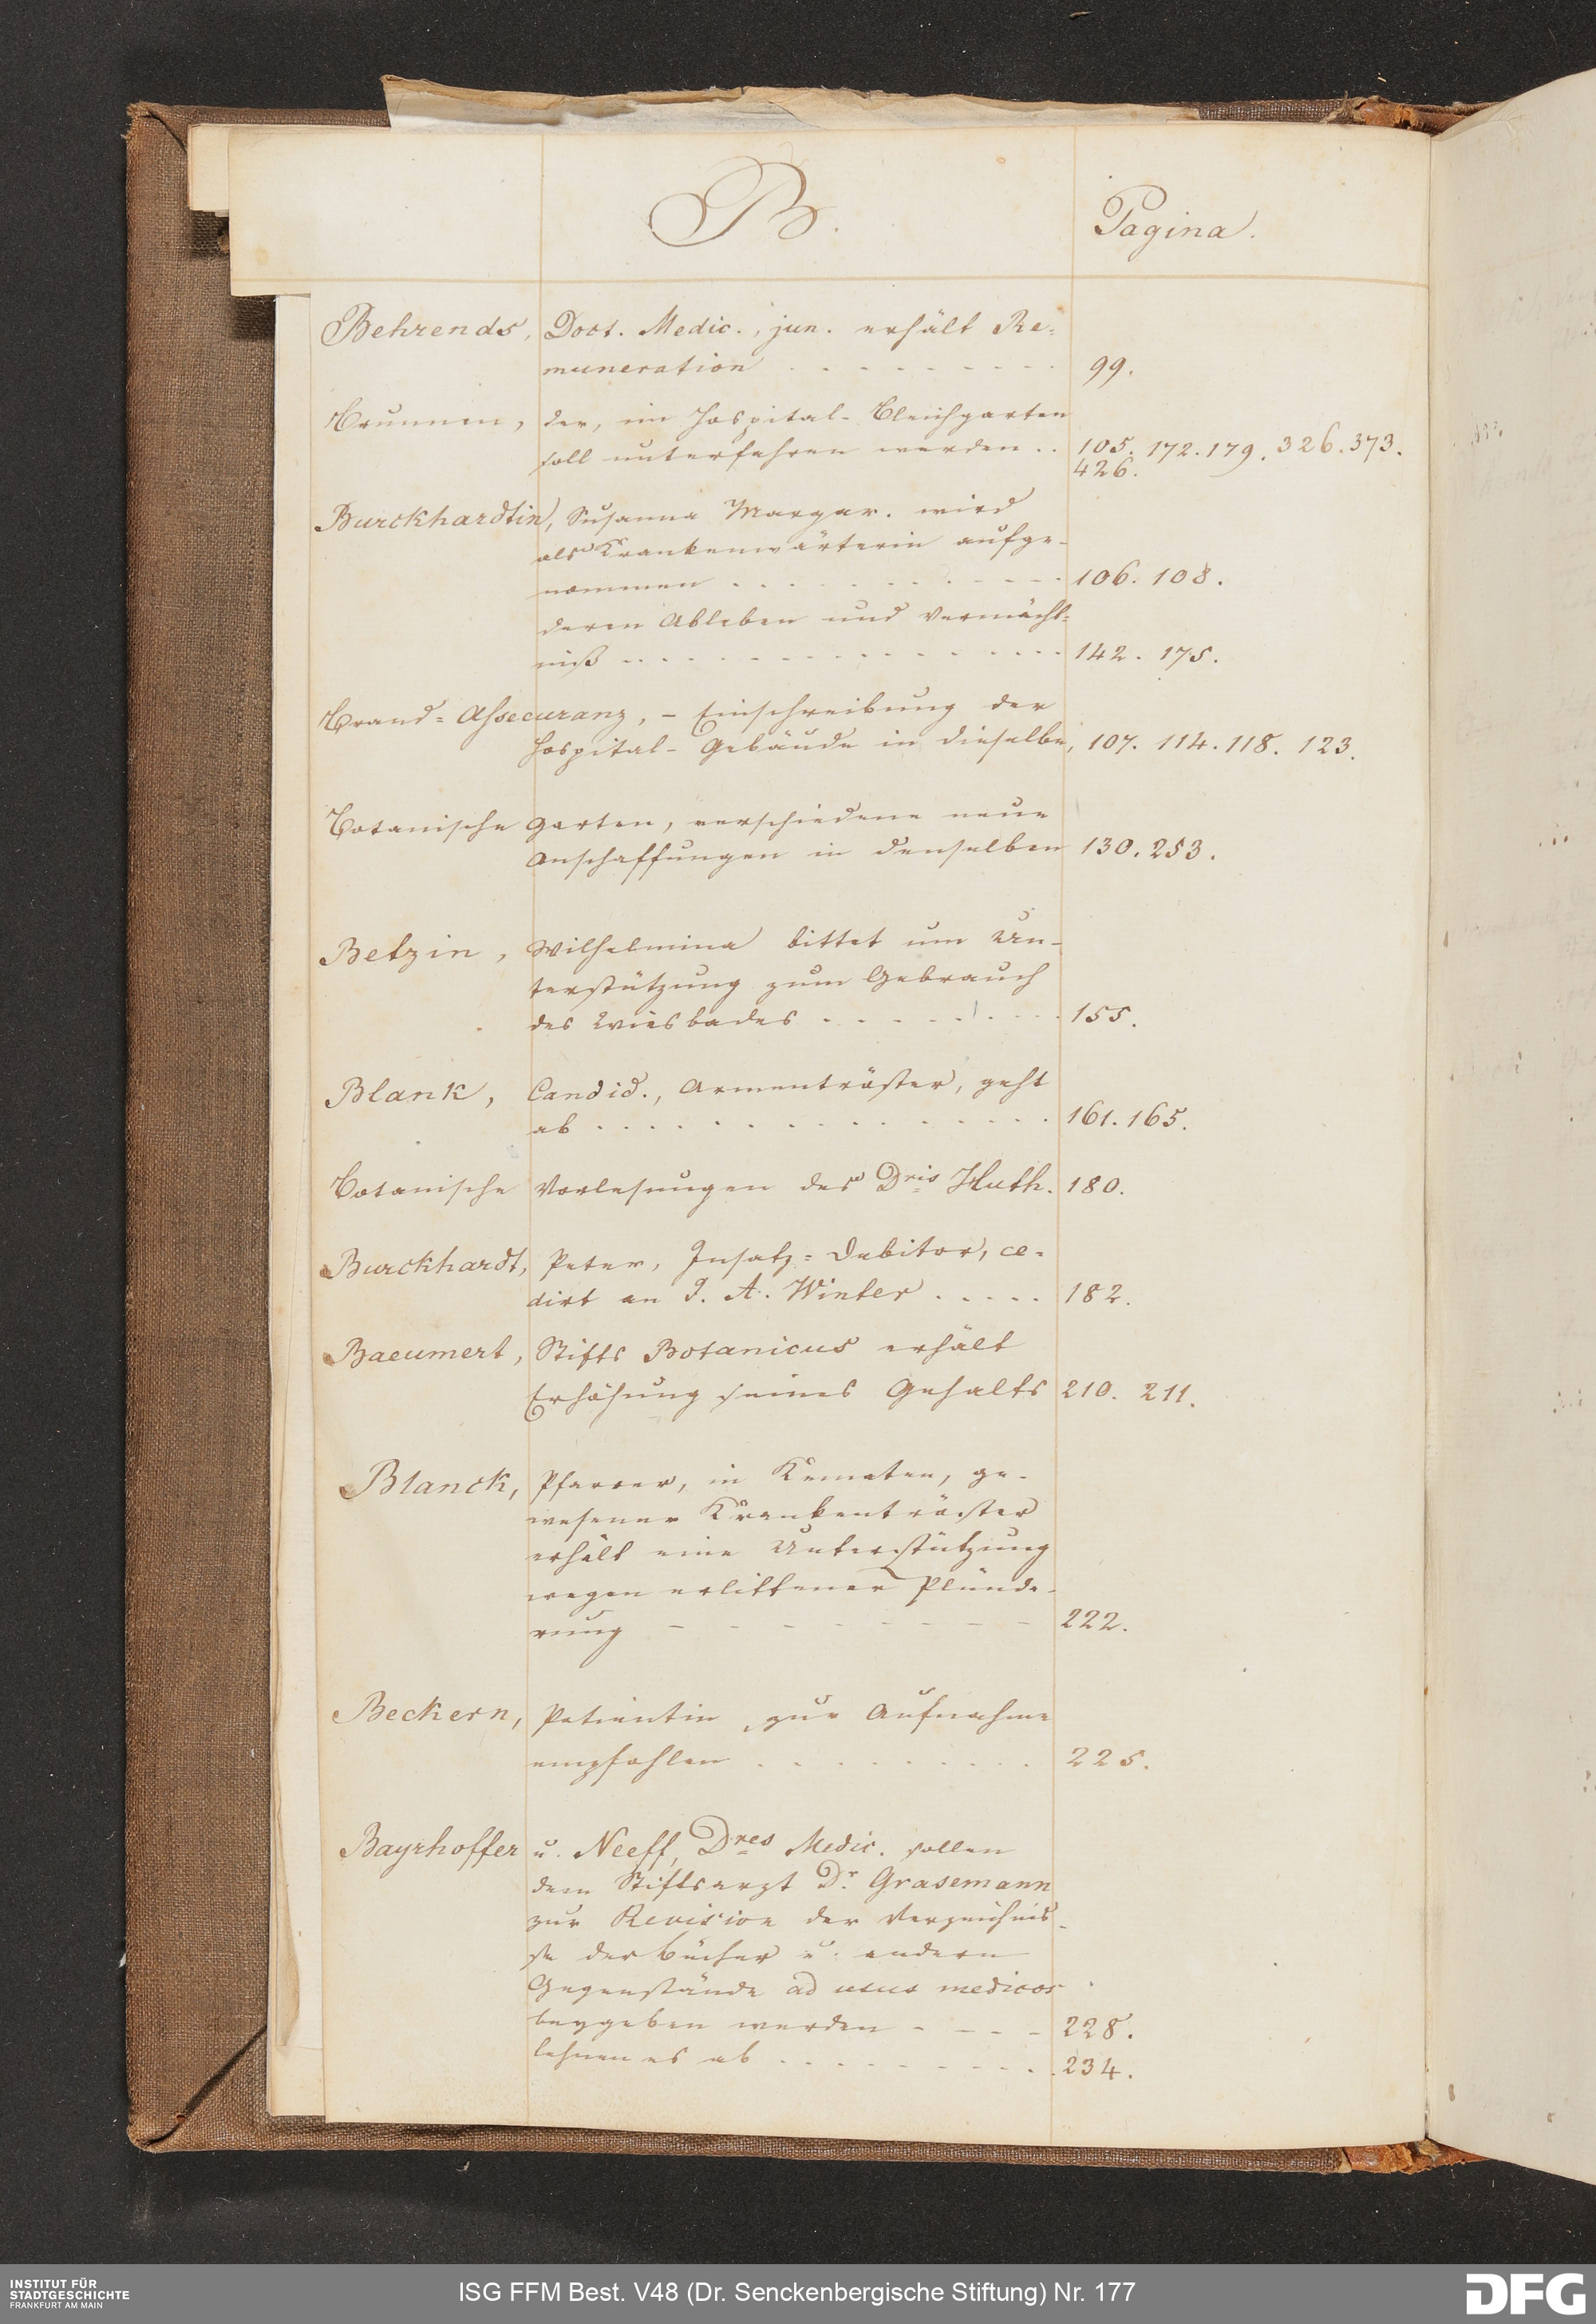 B.
Pagina.
Behrends, Doct. Medic., jun. erhält Re-
muneration . . . . . . . . . 99.
Brunnen, der, im Hospital-Bleichgarten
soll unterfahren werden . . 105. 172. 179. 326. 373.
426.
Burckhardtin, Susanna Margar. wird
als Krankenwärterin aufge-
nommen . . . . . . . . . . 106. 108.
deren Ableben und Vermächt-
niß . . . . . . . . . . . . . 142. 175.
Brand-Assecuranz, - Einschreibung der
Hospital-Gebäude in dieselbe, 107. 114. 118. 123.
Botanische Garten, verschiedene neue
Anschaffungen in denselben 130. 253.
Betzin, Wilhelmina bittet um Un-
terstützung zum Gebrauch
des Wiesbades . . . . . . . 155.
Blank, Candid., Armentröster, geht
ab . . . . . . . . . . . . . 161. 165.
Botanische Vorlesungen des Dris Huth. 180.
Burckhardt, Peter, Insatz-Debitor, ce-
dirt an J. A. Winter . . . . . 182.
Baeumert, Stifts Botanicus erhält
Erhöhung seines Gehalts 210. 211.
Blanck, Pfarrer, in Kematen, ge-
wesener Krankentröster
erhält eine Unterstützung
wegen erlittener Plünde-
rung - - - - - - - - 222.
Beckern, Patientin, zur Aufnahme
empfohlen . . . . . . . . . 225.
Bayrhoffer u. Neeff, Dres Medic. sollen
dem Stiftsarzt Dr. Grasemann
zur Revision der Verzeichnis-
se der Bücher u. andern
Gegenstände ad usus medicos
beygeben werden - - - - 228.
lehnen es ab . . . . . . . . . 234.
INSTITUT FÜR
STADTGESCHICHTE
FRANKFURT AM MAIN
ISG FFM Best. V48 (Dr. Senckenbergische Stiftung) Nr. 177
DFG